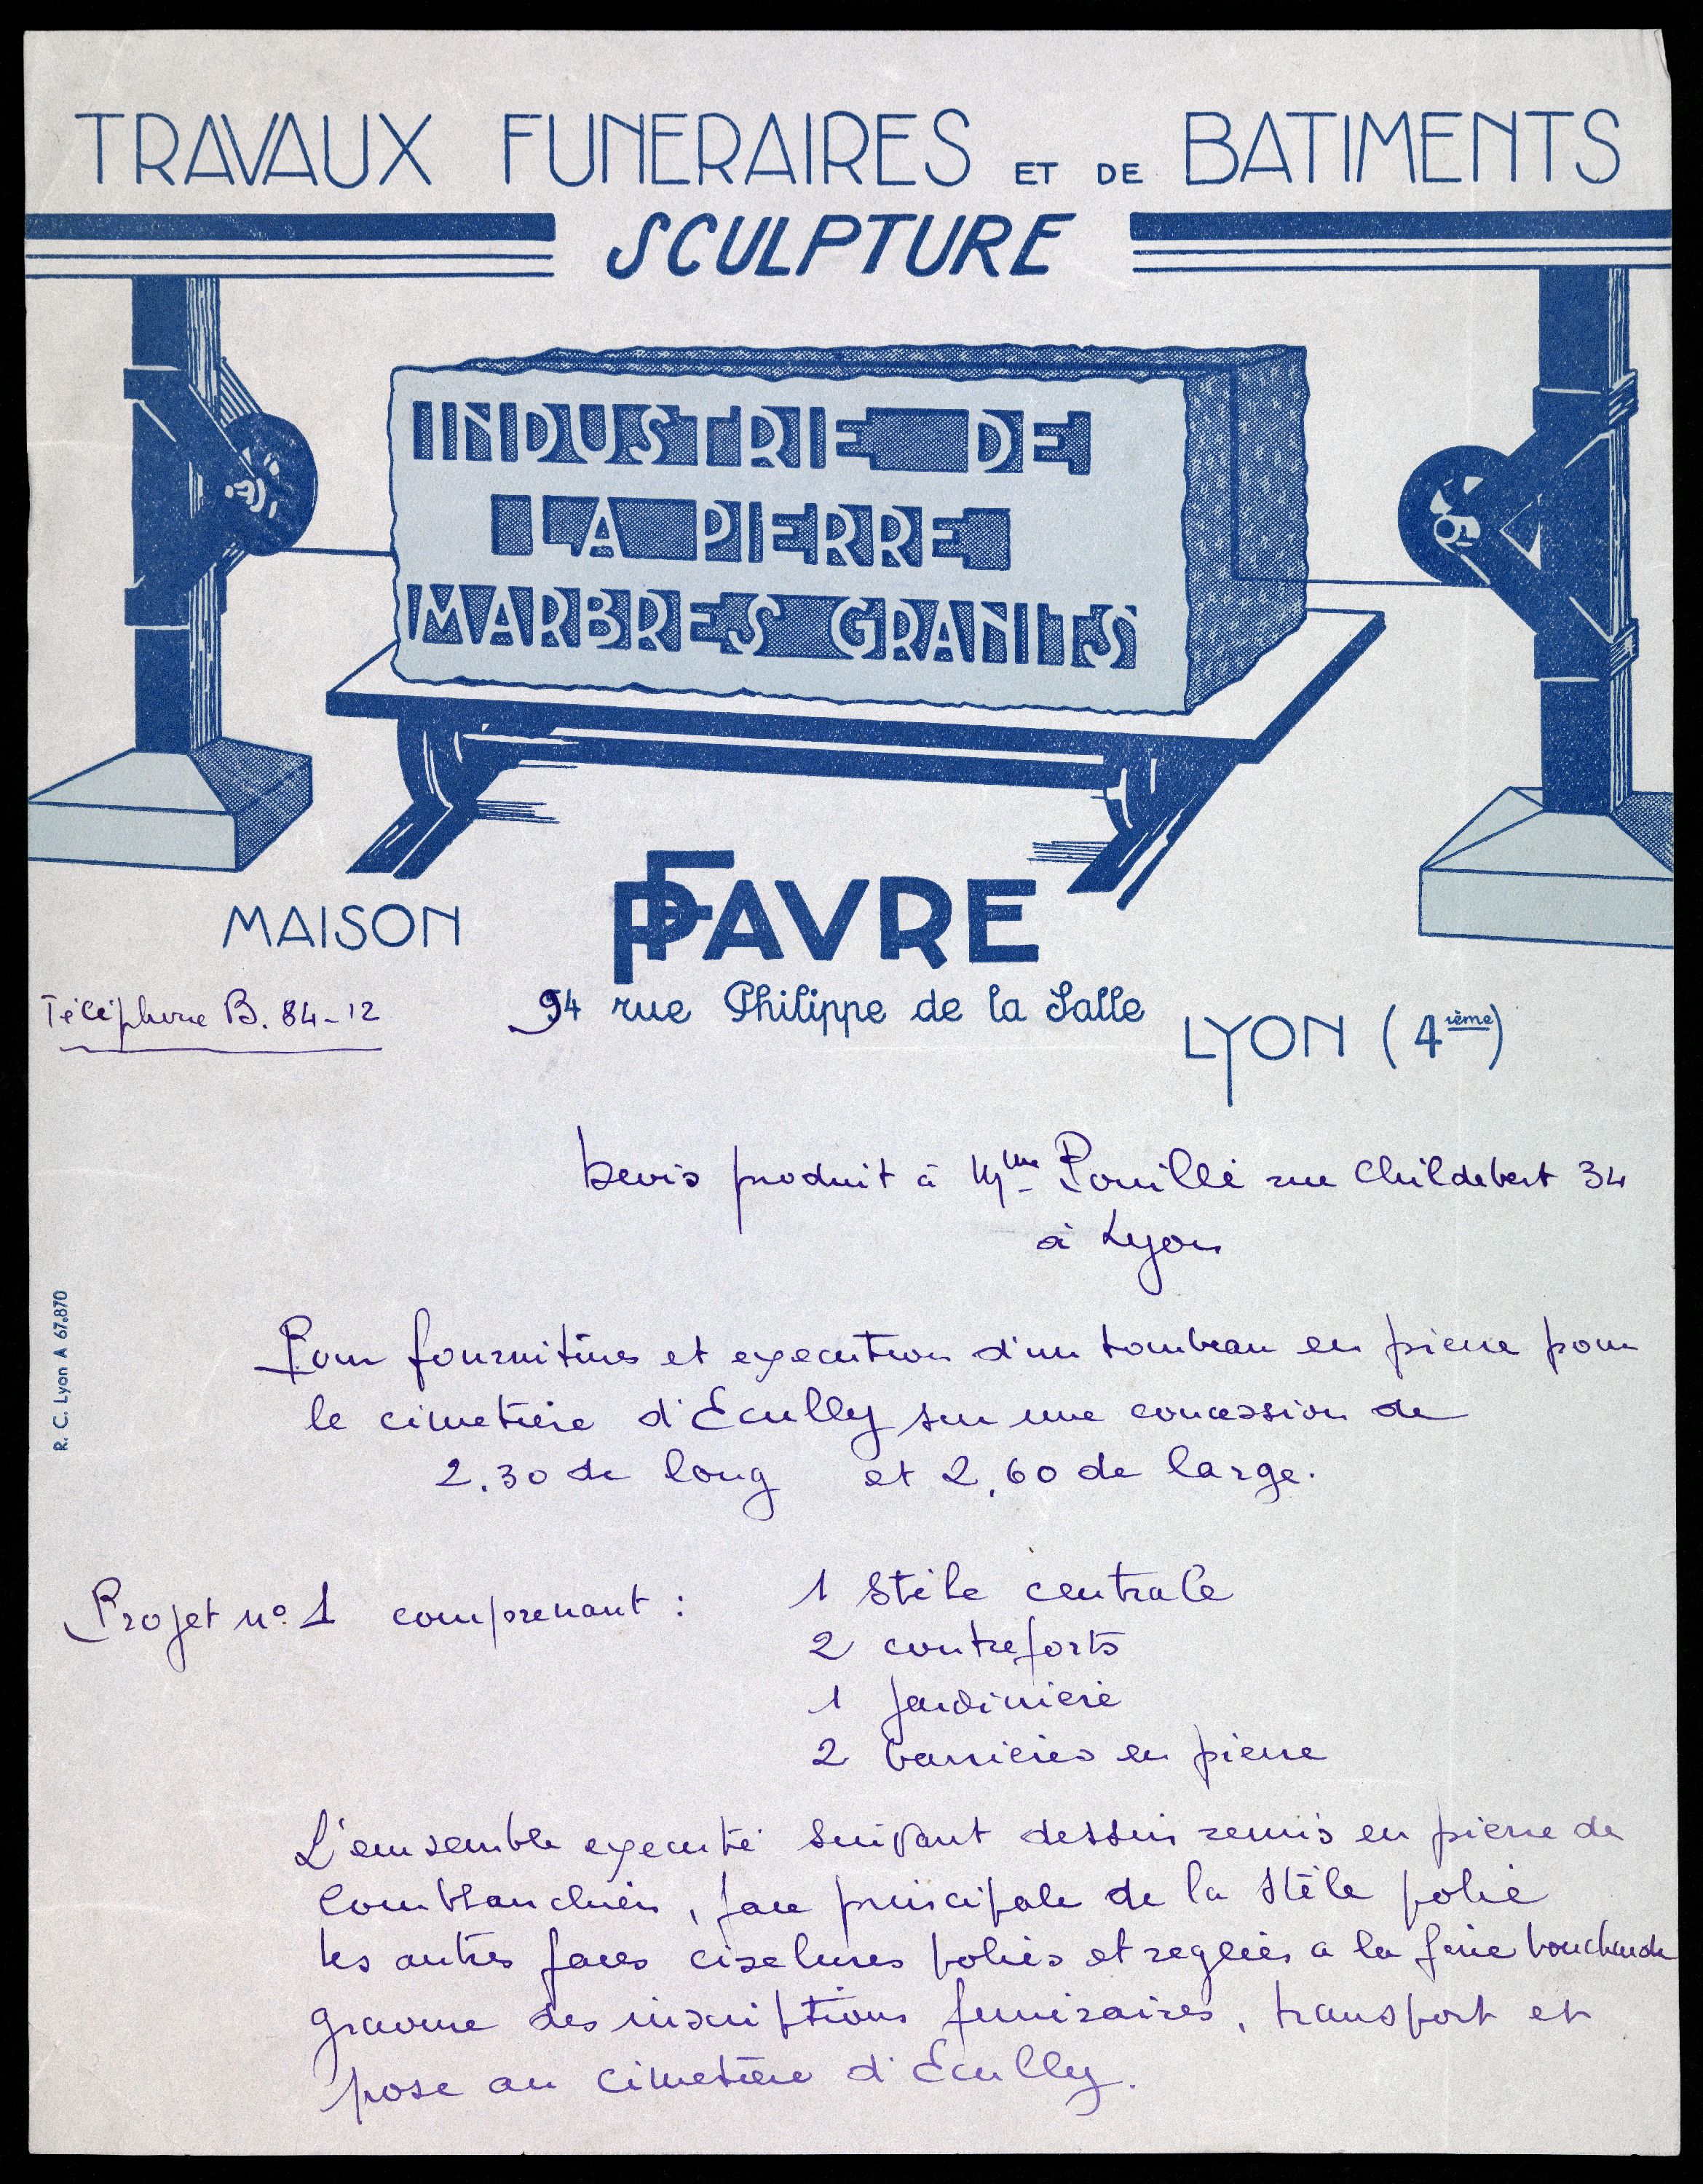 TRAVAUX FUNERAIRES ET DE BATIMENTS
SCULPTURE
INDUSTRIE DE
LA PIERRE
MARBRES GRANITS
MAISON PFAVRE
Téléphone B. 84-12
94 rue Philippe de la Salle
LYON (4ième)
Devis produit à Mme Pouillé rue Childebert 34
à Lyon
R. C. Lyon A 67.870
Pour fournitures et execution d'un tombeau en pierre pour
le cimetière d'Ecully sur une concession de
2.30 de long et 2.60 de large.
Projet n° 1 comprenant :
1 Stèle centrale
2 contreforts
1 jardinière
2 barrières en pierre
L'ensemble executé suivant dessin remis en pierre de
Comblanchien, face principale de la Stèle polie
les autres faces ciselures polies et reglées a la fine boucharde
gravure des inscriptions funéraires, transport et
pose au cimetière d'Ecully.